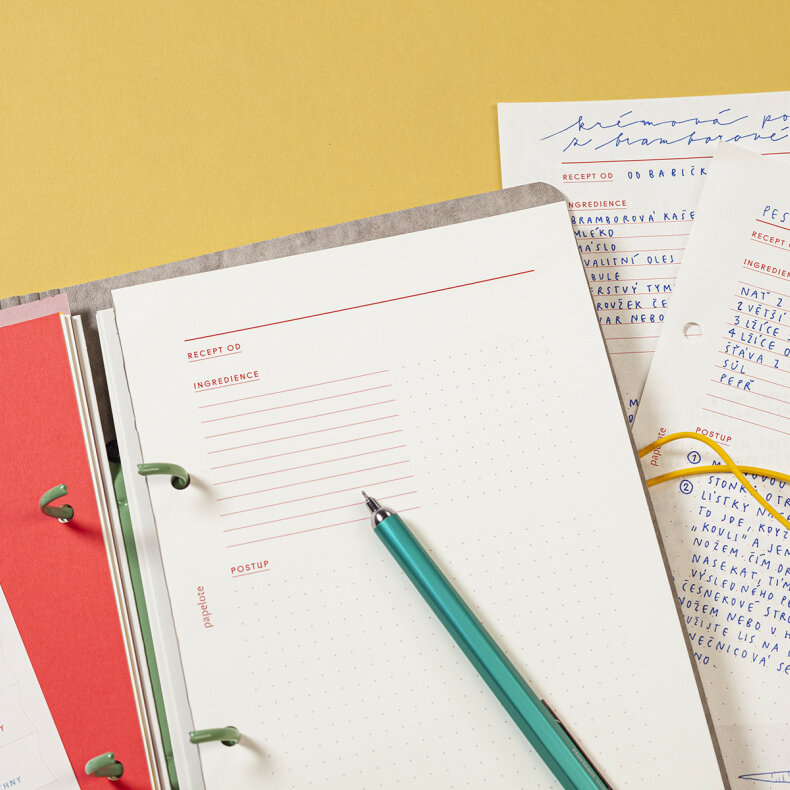 RECEPT OD
INGREDIENCE
POSTUP
papelote
krémová
z bramborové
RECEPT OD OD BABIČK
INGREDIENCE
BRAMBOROVÁ KAŠE
MLÉKO
MÁSLO
VALITNÍ OLEJ
BULE
ERSTVÝ TYM
ROUŽEK ČE
VAR NEBO
PES
RECEPT
INGREDIEN
NAŤ Z
2 VĚTŠÍ
3 LŽÍCE
4 LŽÍCE O
ŠŤÁVA Z
SŮL
PEPŘ
papelote
POSTUP
①
STONK
② LÍSTKY NA
TO JDE, KDYŽ
„KOULI" A JEN
NOŽEM. ČÍM DR
NASEKÁT, TÍM
VÝSLEDNÉHO PE
ČESNEKOVÉ STRO
NOŽEM NEBO V H
UŽIJTE LIS NA
NEČNICOVÁ SE
NO.
Y
CHNY